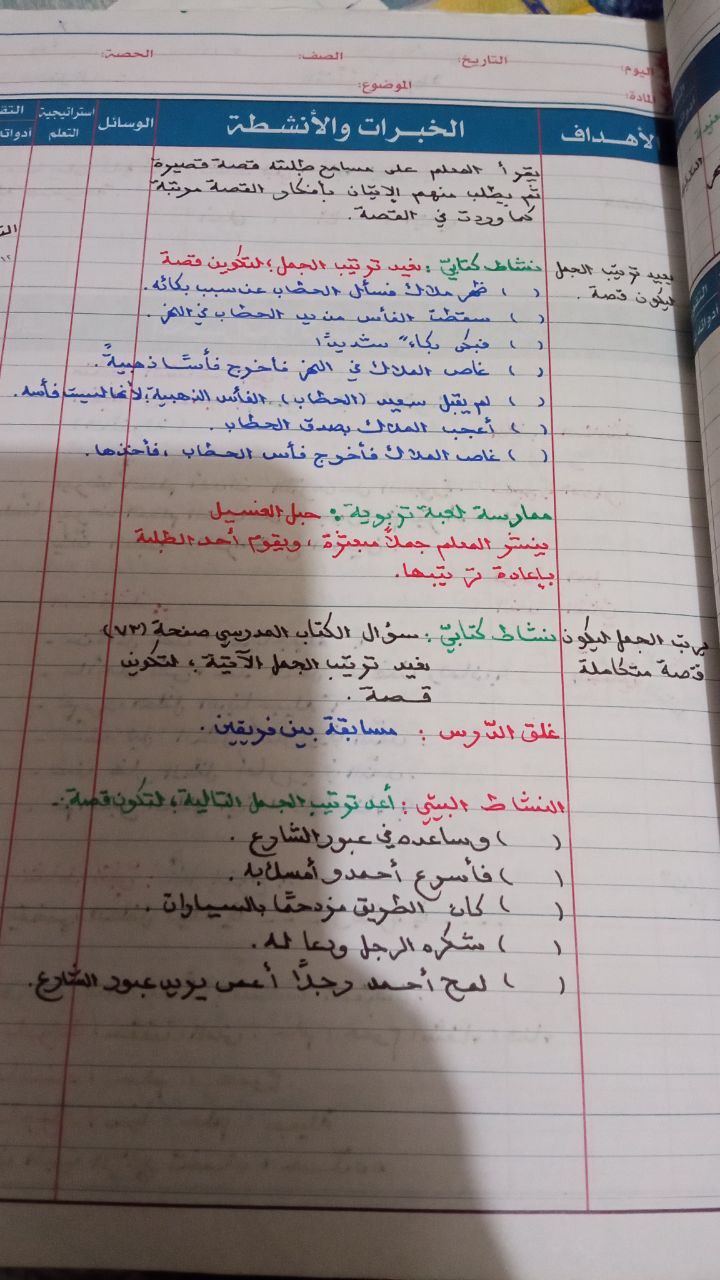 اليوم: التاريخ: الصف: الحصة:
المادة: الموضوع:
الأهداف الخبرات والأنشطة الوسائل استراتيجية التعلم
يقرأ المعلم على مسامع طلبته قصة قصيرة
ثم يطلب منهم الإتيان بأفكار القصة مرتبة
كما وردت في القصة.
يعيد ترتيب الجمل
ليكون قصة.
نشاط كتابيّ: نعيد ترتيب الجمل؛ لتكوين قصة
( ) ظهر ملاك فسأل الحطاب عن سبب بكائه.
( ) سقطت الفأس من يد الحطاب في النهر.
( ) فبكى بكاءً شديدًا
( ) غاص الملاك في النهر فأخرج فأسًا ذهبيةً.
( ) لم يقبل سعيد (الحطاب) الفأس الذهبية؛ لأنها ليست فأسه.
( ) أعجب الملاك بصدق الحطاب.
( ) غاص الملاك فأخرج فأس الحطاب، فأخذها.
ممارسة لعبة تربوية: حبل الغسيل
ينشر المعلم جملاً مبعثرة، ويقوم أحد الطلبة
بإعادة ترتيبها.
يرتب الجمل ليكون
قصة متكاملة
نشاط كتابيّ: سؤال الكتاب المدرسي صفحة (٧٣)
نعيد ترتيب الجمل الآتية؛ لتكوين
قصة.
غلق الدّرس: مسابقة بين فريقين.
النشاط البيتي: أعد ترتيب الجمل التالية؛ لتكون قصة:-
( ) وساعده في عبور الشارع.
( ) فأسرع أحمد وأمسك به.
( ) كان الطريق مزدحمًا بالسيارات.
( ) شكره الرجل ودعا له.
( ) لمح أحمد رجلًا أعمى يريد عبور الشارع.